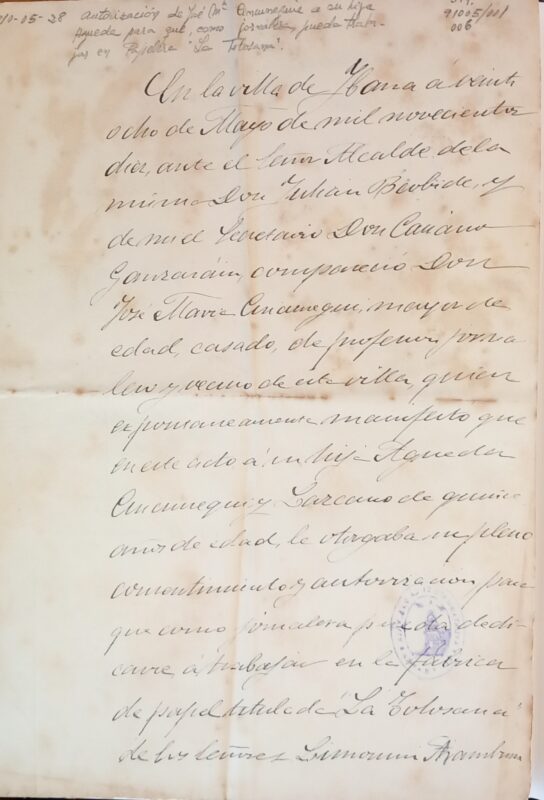 10-05-28 autorización de José Mª a su hija
Agueda para que, como jornalera, pueda trabajar en Papelera "La Tolosana".
91005/001
006
En la villa de Ibarra á veinti
ocho de Mayo de mil novecientos
diez, ante el Señor Alcalde de la
misma Don Julian Beobide, y
de mi el Secretario Don Casiano
Ganzarain, compareció Don
José Maria, mayor de
edad, casado, de profesion jorna
lero y vecino de esta villa, quien
espontaneamente manifestó que
en este acto á su hija Agueda
y Lazcano de quince
años de edad, le otorgaba su pleno
consentimiento y autorizacion para
que como jornalera pueda dedi
carse á trabajar en la fábrica
de papel titulada "La Tolosana"
de los Señores Limousin Aramburu